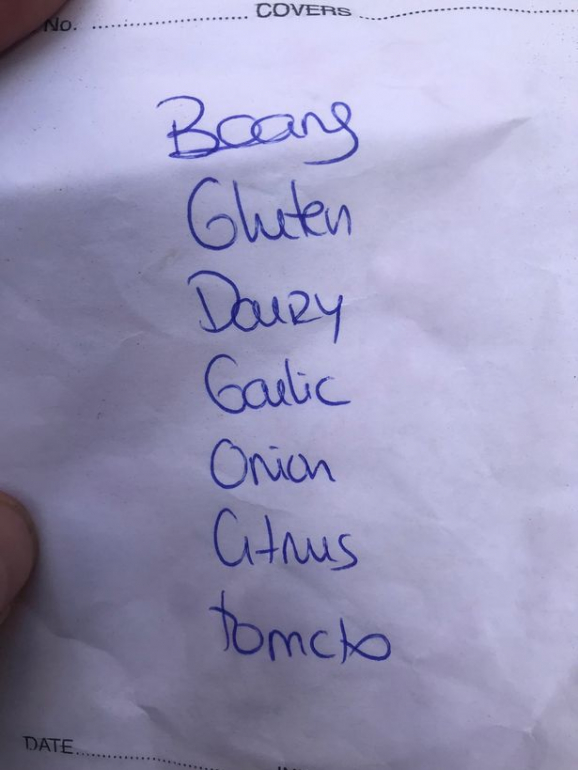 No. COVERS
Beans
Gluten
Dairy
Garlic
Onion
Citrus
tomato
DATE